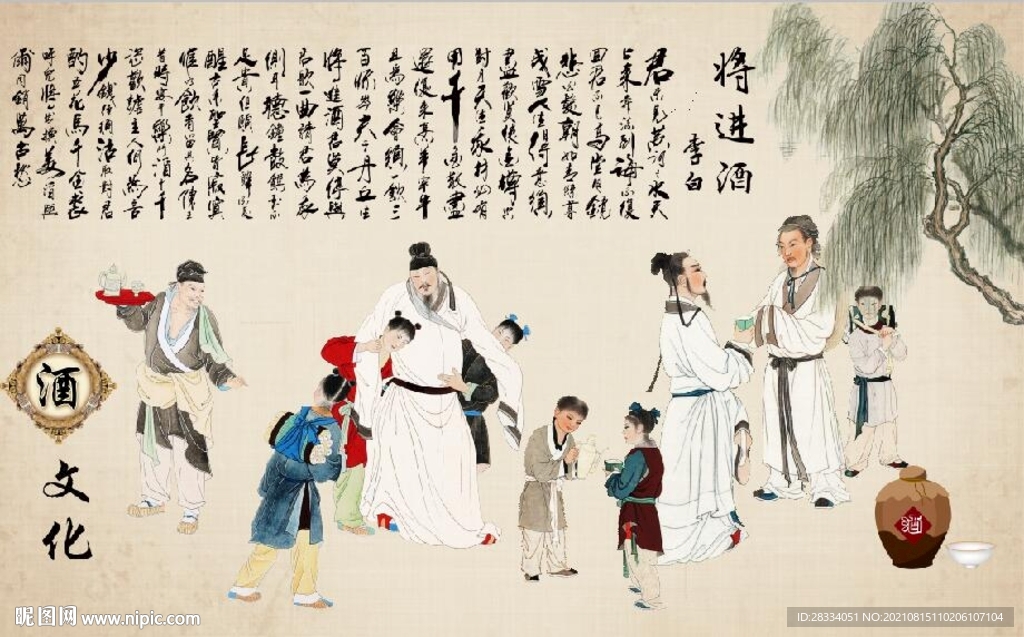 将进酒
李白
君不見黃河之水天
上來奔流到海不復
回君不見高堂明鏡
悲白髮朝如青絲暮
成雪人生得意須
盡歡莫使金樽空
對月天生我材必有
用千金散盡
還復來烹羊宰牛
且為樂會須一飲三
百杯岑夫子丹丘生
將進酒君莫停與
君歌一曲請君為我
側耳聽鐘鼓饌玉不
足貴但願長醉不
醒古來聖賢皆寂寞
惟有飲者留其名陳王
昔時宴平樂斗酒十千
恣歡謔主人何為言
少錢徑須沽取對君
酌五花馬千金裘
呼兒將出換美酒與
爾同銷萬古愁
酒
文化
酒
昵图网 www.nipic.com
ID:28334051 NO:20210815110206107104